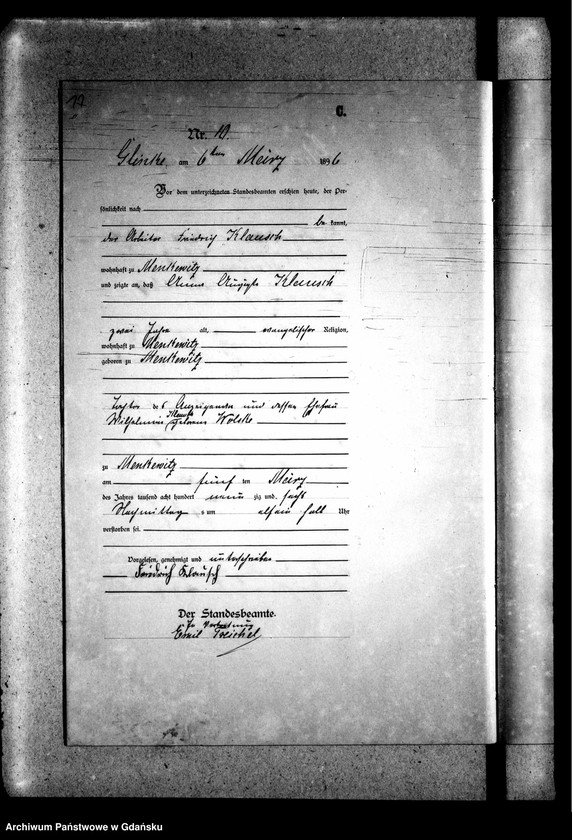 12
C.
Nr. 12.
Glinke am 6ten März 1896
Vor dem unterzeichneten Standesbeamten erschien heute, der Per-
sönlichkeit nach
be kannt,
der Arbeiter Friedrich Klausch
wohnhaft zu Menkewitz
und zeigte an, daß Anna Auguste Klausch
zwei Jahre alt, evangelischer Religion,
wohnhaft zu Menkewitz
geboren zu Menkewitz
Tochter des Anzeigenden und dessen Ehefrau
Wilhelmine Klausch geborene Wolske
zu Menkewitz
am fünf ten März
des Jahres tausend acht hundert neun zig und sechs
Nachmittag s um halb Uhr
verstorben sei.
Vorgelesen, genehmigt und unterschrieben
Friedrich Klausch
Der Standesbeamte.
In Vertretung
Emil Treichel
Archiwum Państwowe w Gdańsku